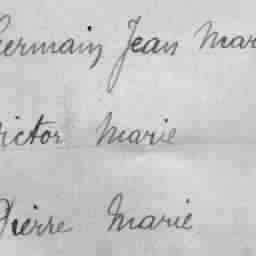 Germain Jean Mar
Victor Marie
Pierre Marie